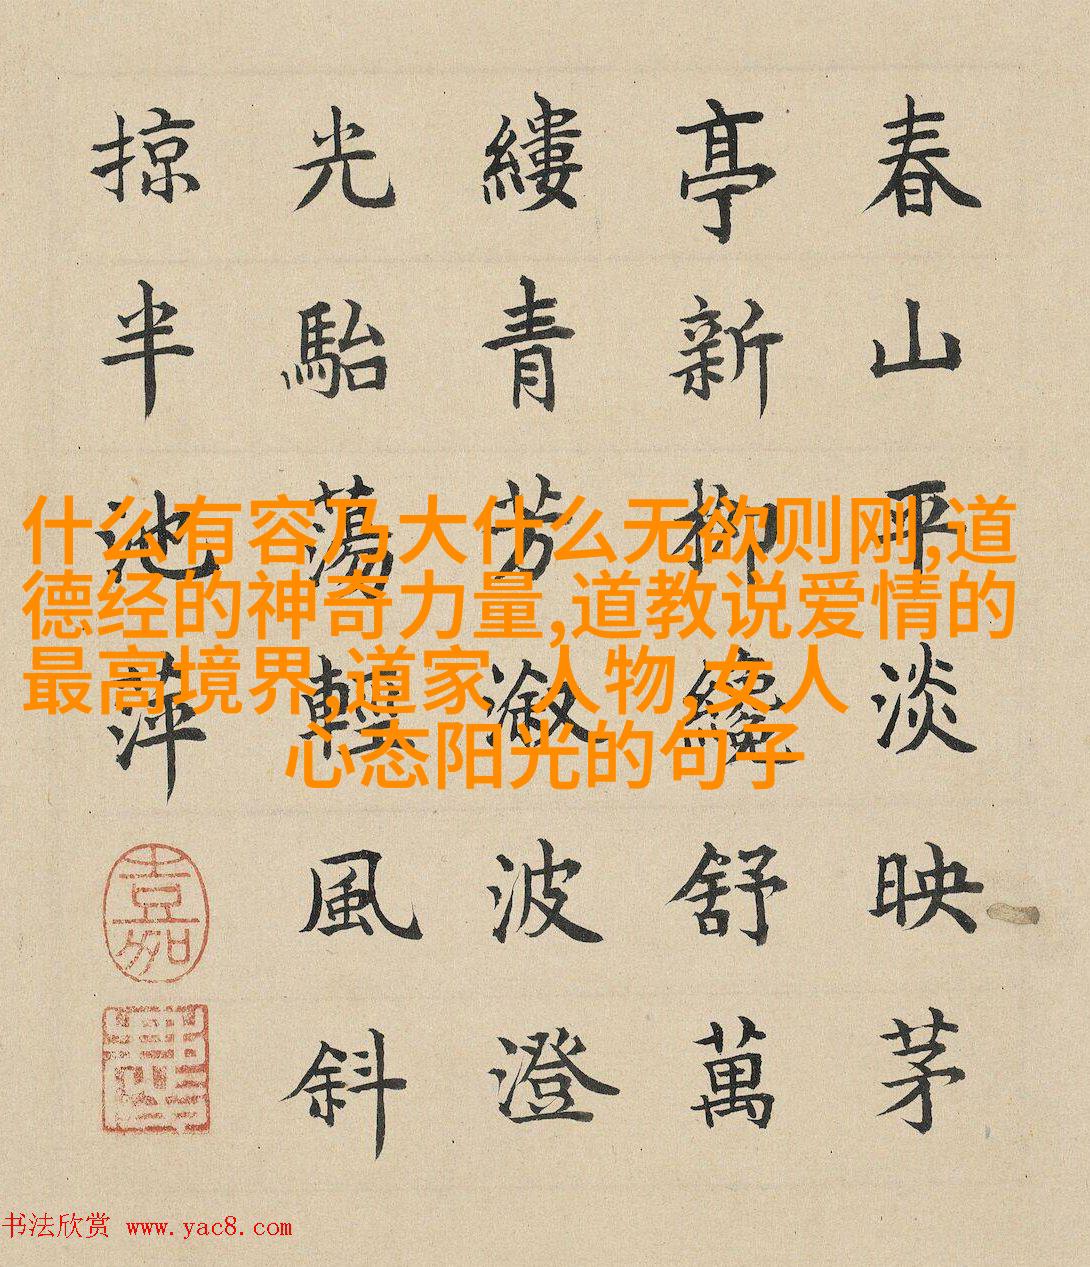 春山平淡映茅
亭新柳纔舒萬
縷青芳漵波澄
光駘蕩輕風斜
掠半池萍
嘉
什么有容乃大什么无欲则刚,道
德经的神奇力量,道教说爱情的
最高境界,道家 人物,女人
心态阳光的句子
书法欣赏 www.yac8.com